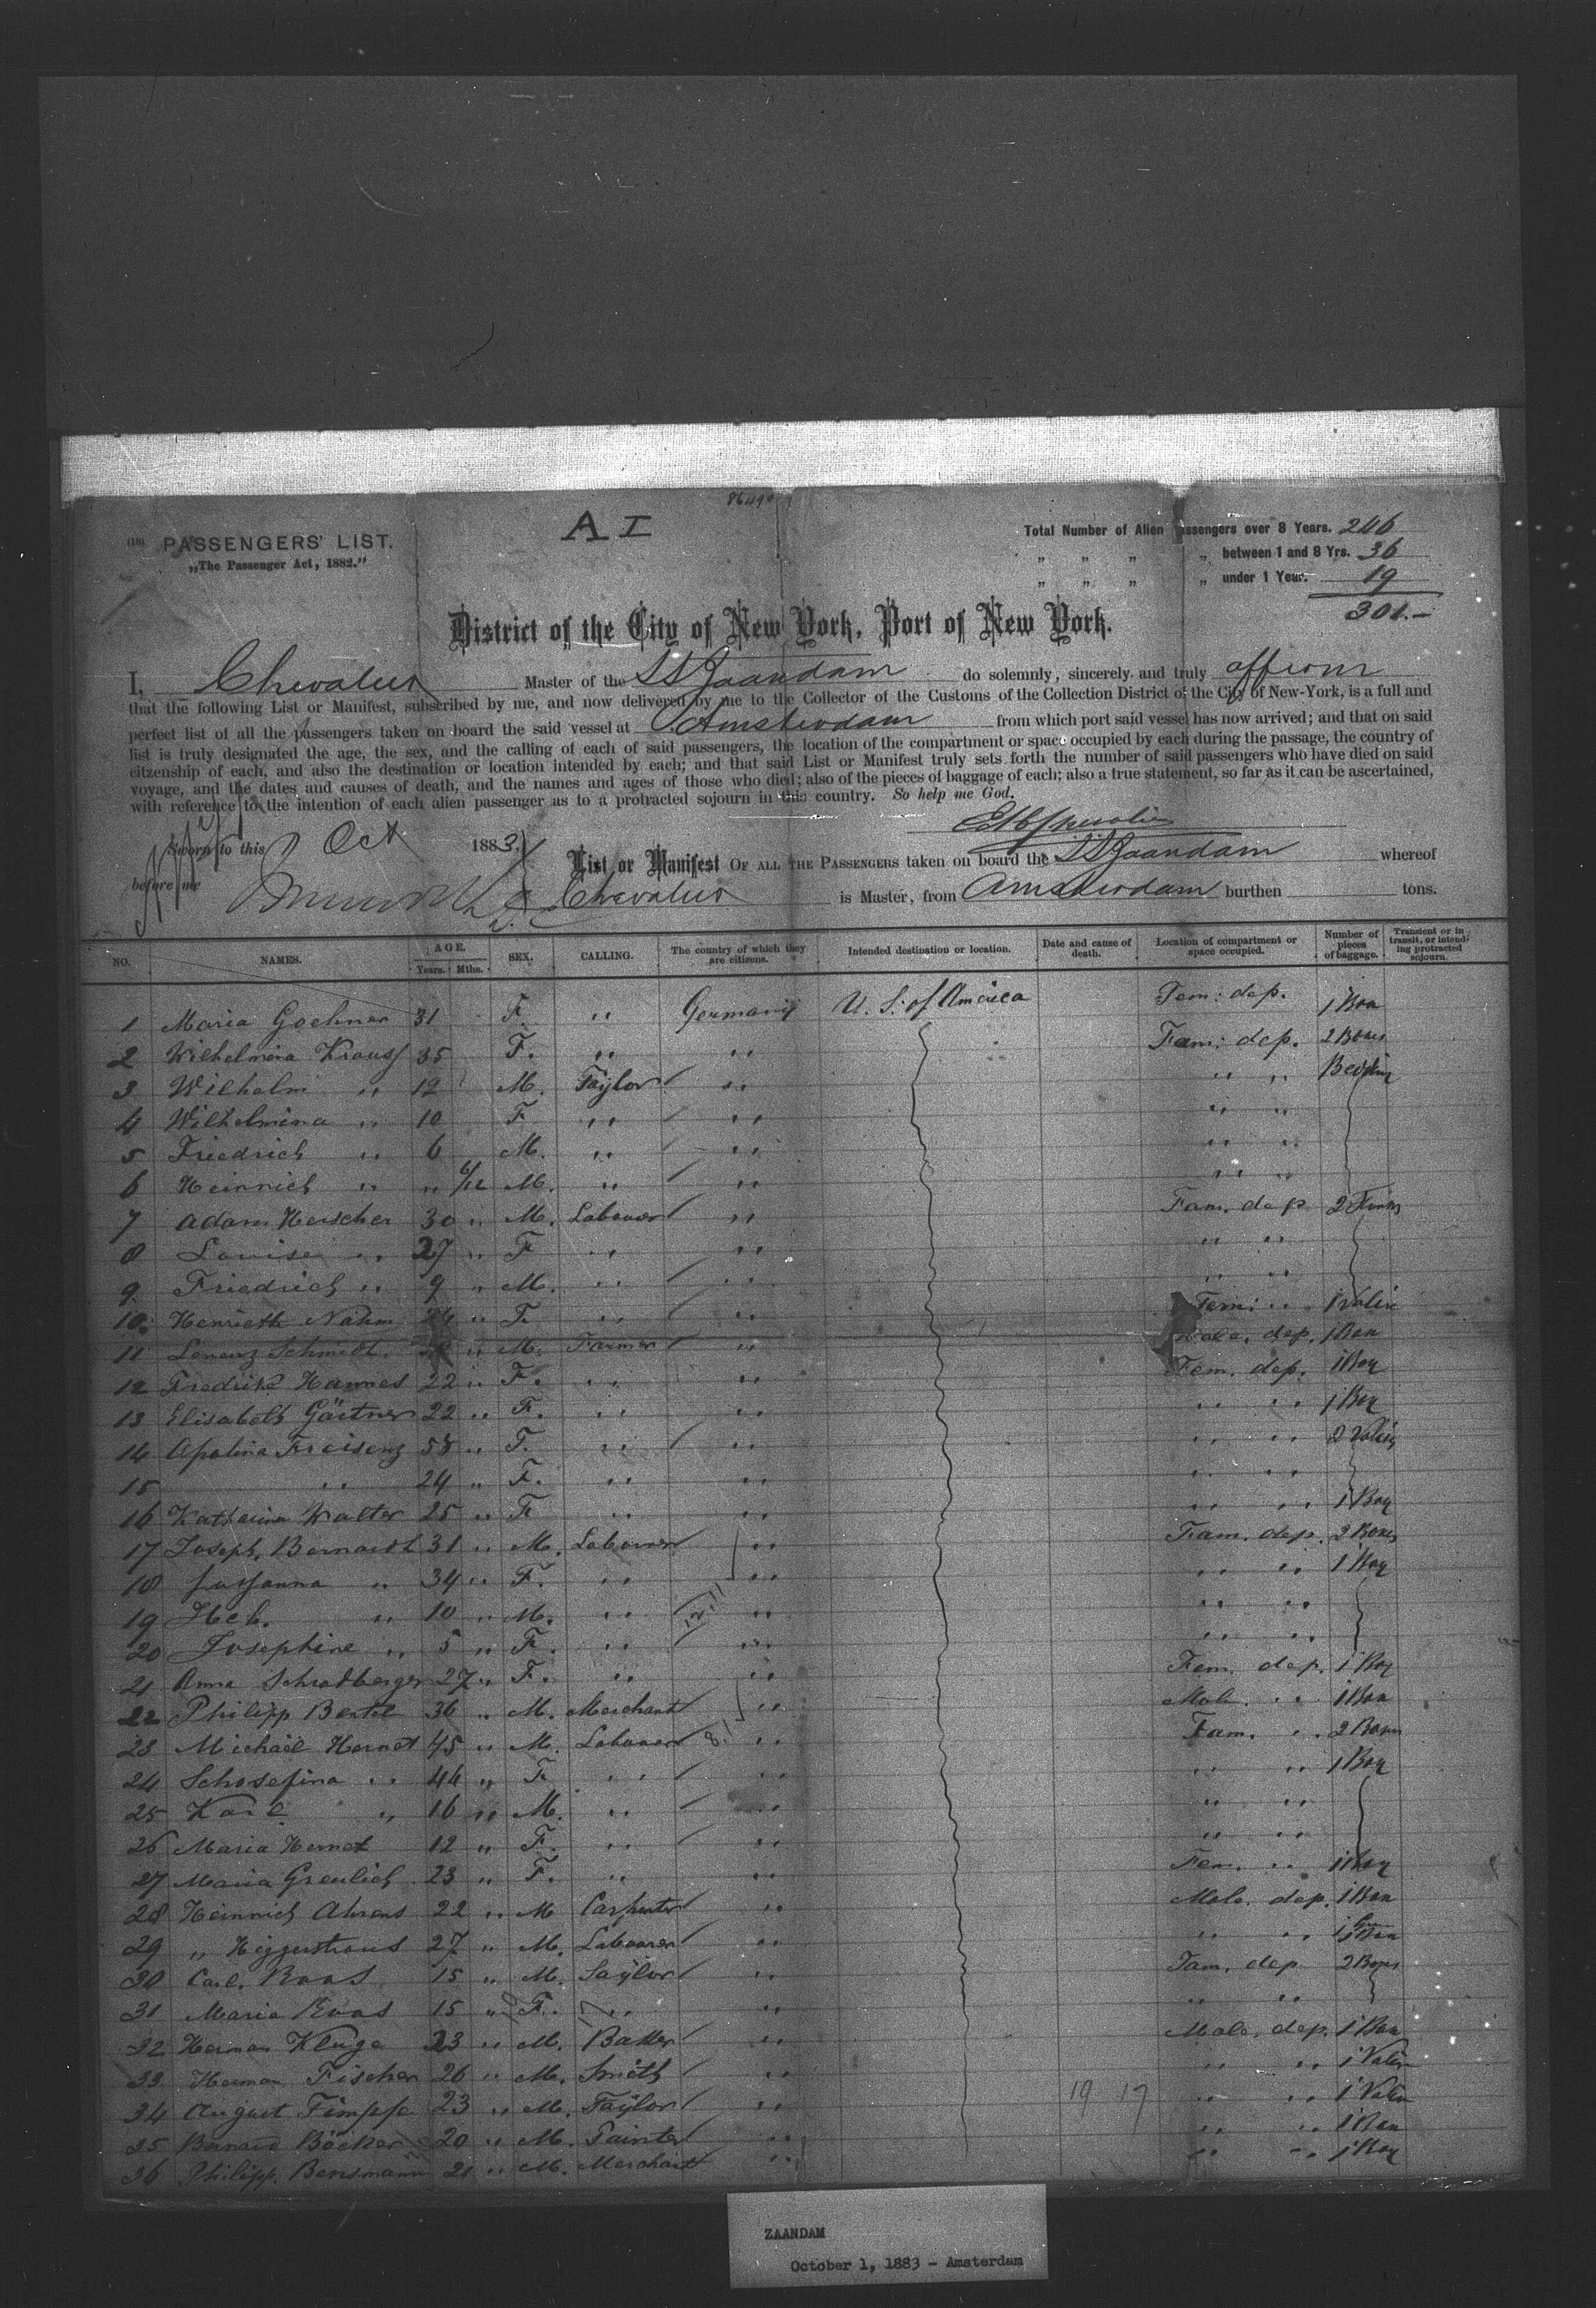 86490
A I
(18) PASSENGERS' LIST.
„The Passenger Act, 1882."
Total Number of Alien Passengers over 8 Years. 246
„ „ „ „ between 1 and 8 Yrs. 36
„ „ „ „ under 1 Year. 19
301.-
District of the City of New York, Port of New York.
I, Chevalier Master of the SS Zaandam do solemnly, sincerely and truly affirm
that the following List or Manifest, subscribed by me, and now delivered by me to the Collector of the Customs of the Collection District of the City of New-York, is a full and
perfect list of all the passengers taken on board the said vessel at Amsterdam from which port said vessel has now arrived; and that on said
list is truly designated the age, the sex, and the calling of each of said passengers, the location of the compartment or space occupied by each during the passage, the country of
citzenship of each, and also the destination or location intended by each; and that said List or Manifest truly sets forth the number of said passengers who have died on said
voyage, and the dates and causes of death, and the names and ages of those who died; also of the pieces of baggage of each; also a true statement, so far as it can be ascertained,
with reference to the intention of each alien passenger as to a protracted sojourn in this country. So help me God.
Sworn to this Oct 1883.
before me
List or Manifest OF ALL THE PASSENGERS taken on board the SS Zaandam whereof
Chevalier is Master, from Amsterdam burthen tons.
NO. NAMES. AGE. Years. Mths. SEX. CALLING. The country of which they are citizens. Intended destination or location. Date and cause of death. Location of compartment or space occupied. Number of pieces of baggage. Transient or in transit, or intending protracted sojourn.
1 Maria Goehner 31 F. „ Germany U. S. of America Fem: dep. 1 Box
2 Wilhelmina Krauss 35 F. „ „ Fam: dep. 2 Boxes
3 Wilhelm „ 12 M. Taylor „ „ „ Bedding
4 Wilhelmina „ 10 F „ „ „ „
5 Friedrich „ 6 M. „ „ „ „
6 Heinrich „ „ 6/12 M. „ „ „ „
7 Adam Herscher 30 „ M. Labourer „ Fam. dep 2
8 Louise „ 27 „ F „ „ „ „
9 Friedrich „ 9 „ M. „ „ „ „
10 Henriette Nahm 24 „ F. „ „ Fem: „ 1 Valise
11 Lorenz Schmidt „ M. Farmer „ Male. dep. 1 Box
12 Fredrike Hannes 22 „ F. „ „ Fem. dep. 1 Box
13 Elisabeth Gärtner 22 „ F. „ „ „ „ 1 Box
14 Apolina Freisenz 58 „ F. „ „ „ „ 2 Valises
15 „ 24 „ F. „ „ „ „
16 Katharina Walter 25 „ F „ „ „ „ 1 Box
17 Joseph Bernardt 31 „ M. Labourer „ Fam. dep. 2 Boxes
18 Sussanna „ 34 „ F. „ „ „ „ 1 Box
19 Hch. „ 10 „ M. „ „ „ „
20 Josephine „ 5 „ F. „ „ „ „
21 Anna Schradberger 27 „ F. „ „ Fem. dep. 1 Box
22 Philipp Bertel 36 „ M. Merchant „ Male. „ 1 Box
23 Michael Hernet 45 „ M. Labourer „ Fam. „ 2 Boxes
24 Schosefina „ 44 „ F „ „ „ „ 1 Box
25 Karl „ 16 „ M. „ „ „ „
26 Maria Hernet 12 „ F. „ „ „ „
27 Maria Greulich 23 „ F. „ „ Fem. „ 1 Box
28 Heinrich Ahrens 22 „ M Carpenter „ Male. dep. 1 Box
29 „ Higgerstraus 27 „ M. Labourer „ „ „ 1 Box
30 Carl. Roos 15 „ M. Taylor „ Fam. dep 2 Boxes
31 Maria Roos 15 „ F. „ „ „ „
32 Herman Kluge 23 „ M. Baker „ Male. dep. 1 Box
33 Herman Fischer 26 „ M. Smith „ „ „ 1 Valise
34 August Timppe 23 „ M. Taylor „ 19 17 „ „ 1 Valise
35 Bernard Böcker 20 „ M. Painter „ „ „ 1 Box
36 Philipp Bensmann 21 „ M. Merchant „ „ „ 1 Box
ZAANDAM
October 1, 1883 - Amsterdam